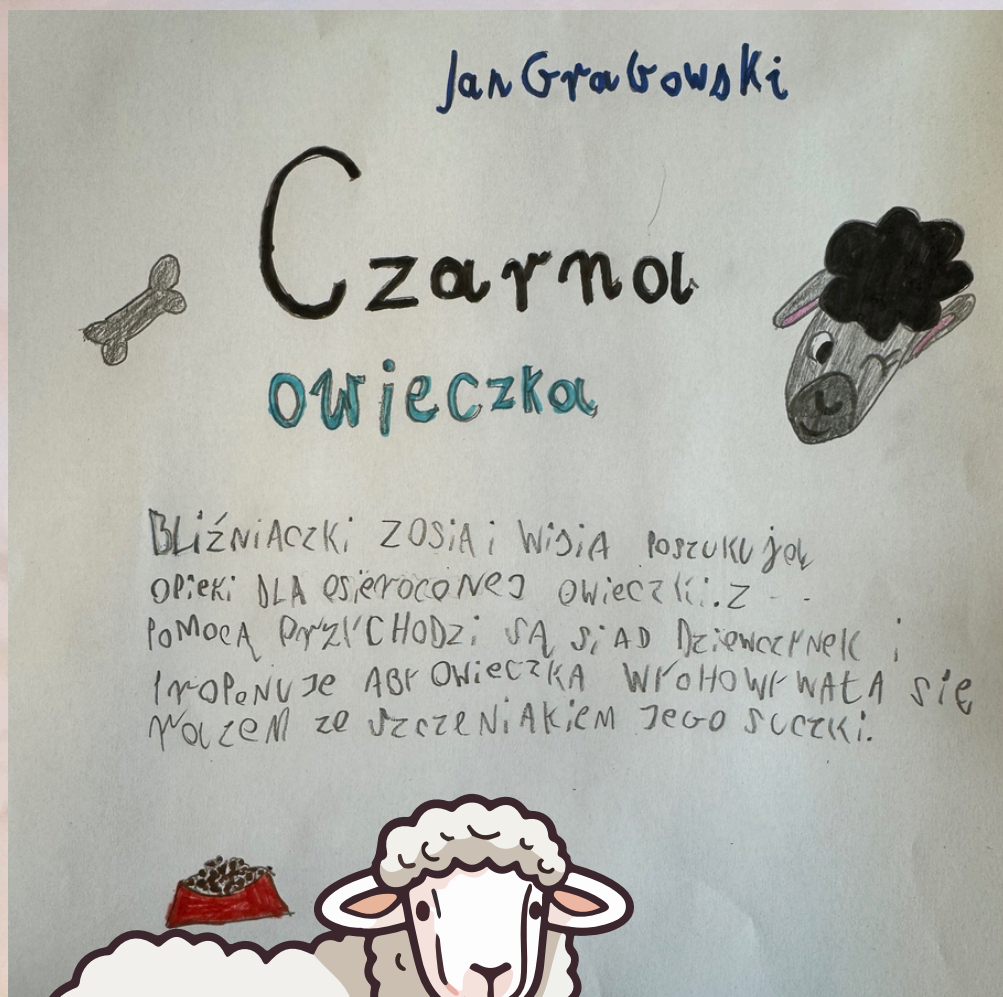 Jan Grabowski
Czarna
owieczka
BLiŹNiACZKi ZOSiA i WiSiA POSZUKUJą
OPiEKi DLA OSieroCONeJ OWieCZKi. Z - -
POMOCĄ PrZYCHODZi SĄSiAD DZiewCZYNeK i
PrOPONUJe ABY OWieCZKA WYCHOWYWAŁA Się
rAZEM ze SZCZENiAKiEM JEGO SUCZKi.